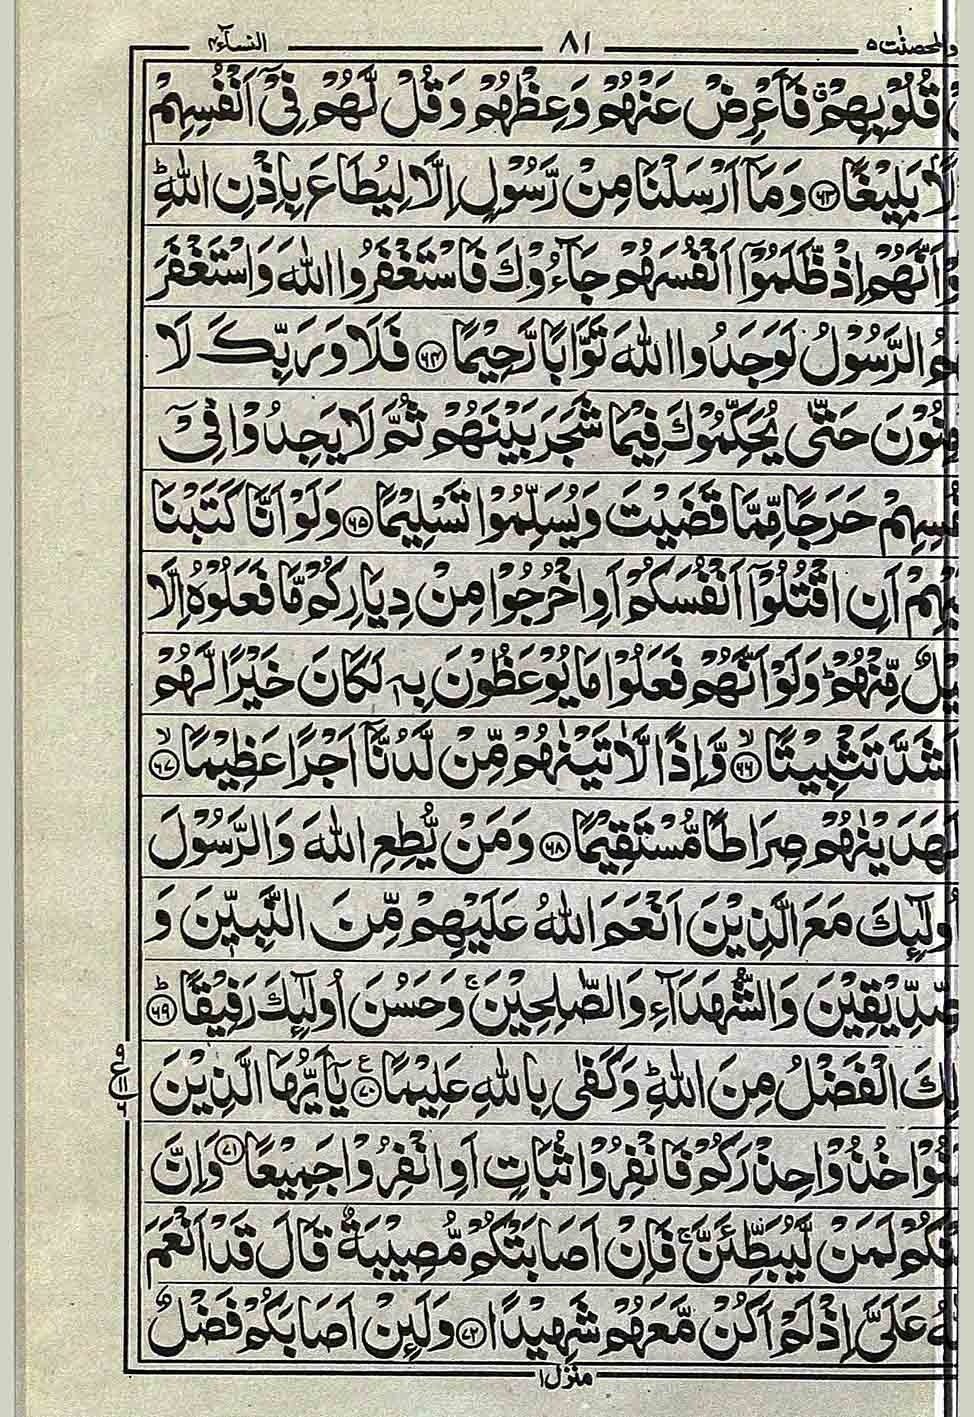 والمحصنٰت ۵ ۸۱ النسآء ۴
قُلُوۡبِهِمۡ ۗ فَاَعۡرِضۡ عَنۡهُمۡ وَعِظۡهُمۡ وَقُلۡ لَّهُمۡ فِیۡۤ اَنۡفُسِهِمۡ
بَلِیۡغًا ﴿۶۳﴾ وَمَاۤ اَرۡسَلۡنَا مِنۡ رَّسُوۡلٍ اِلَّا لِیُطَاعَ بِاِذۡنِ اللّٰهِ ؕ
اَنَّهُمۡ اِذۡ ظَّلَمُوۡۤا اَنۡفُسَهُمۡ جَآءُوۡكَ فَاسۡتَغۡفَرُوا اللّٰهَ وَاسۡتَغۡفَرَ
الرَّسُوۡلُ لَوَجَدُوا اللّٰهَ تَوَّابًا رَّحِیۡمًا ﴿۶۴﴾ فَلَا وَرَبِّكَ لَا
حَتّٰی یُحَكِّمُوۡكَ فِیۡمَا شَجَرَ بَیۡنَهُمۡ ثُمَّ لَا یَجِدُوۡا فِیۡۤ
حَرَجًا مِّمَّا قَضَیۡتَ وَیُسَلِّمُوۡا تَسۡلِیۡمًا ﴿۶۵﴾ وَلَوۡ اَنَّا كَتَبۡنَا
اَنِ اقۡتُلُوۡۤا اَنۡفُسَكُمۡ اَوِ اخۡرُجُوۡا مِنۡ دِیَارِكُمۡ مَّا فَعَلُوۡهُ اِلَّا
مِّنۡهُمۡ ؕ وَلَوۡ اَنَّهُمۡ فَعَلُوۡا مَا یُوۡعَظُوۡنَ بِهٖ لَكَانَ خَیۡرًا لَّهُمۡ
اَشَدَّ تَثۡبِیۡتًا ﴿۶۶﴾ۙ وَّاِذًا لَّاٰتَیۡنٰهُمۡ مِّنۡ لَّدُنَّاۤ اَجۡرًا عَظِیۡمًا ﴿۶۷﴾ۙ
لَهَدَیۡنٰهُمۡ صِرَاطًا مُّسۡتَقِیۡمًا ﴿۶۸﴾ وَمَنۡ یُّطِعِ اللّٰهَ وَالرَّسُوۡلَ
اُولٰٓئِكَ مَعَ الَّذِیۡنَ اَنۡعَمَ اللّٰهُ عَلَیۡهِمۡ مِّنَ النَّبِیّٖنَ وَ
صِّدِّیۡقِیۡنَ وَالشُّهَدَآءِ وَالصّٰلِحِیۡنَ ۚ وَحَسُنَ اُولٰٓئِكَ رَفِیۡقًا ﴿۶۹﴾ؕ
لِكَ الۡفَضۡلُ مِنَ اللّٰهِ ؕ وَكَفٰی بِاللّٰهِ عَلِیۡمًا ﴿۷۰﴾ یٰۤاَیُّهَا الَّذِیۡنَ
خُذُوۡا حِذۡرَكُمۡ فَانۡفِرُوۡا ثُبَاتٍ اَوِ انۡفِرُوۡا جَمِیۡعًا ﴿۷۱﴾ وَاِنَّ
لَمَنۡ لَّیُبَطِّئَنَّ ۚ فَاِنۡ اَصَابَتۡكُمۡ مُّصِیۡبَةٌ قَالَ قَدۡ اَنۡعَمَ
عَلَیَّ اِذۡ لَمۡ اَكُنۡ مَّعَهُمۡ شَهِیۡدًا ﴿۷۲﴾ وَلَئِنۡ اَصَابَكُمۡ فَضۡلٌ
منزل ۱